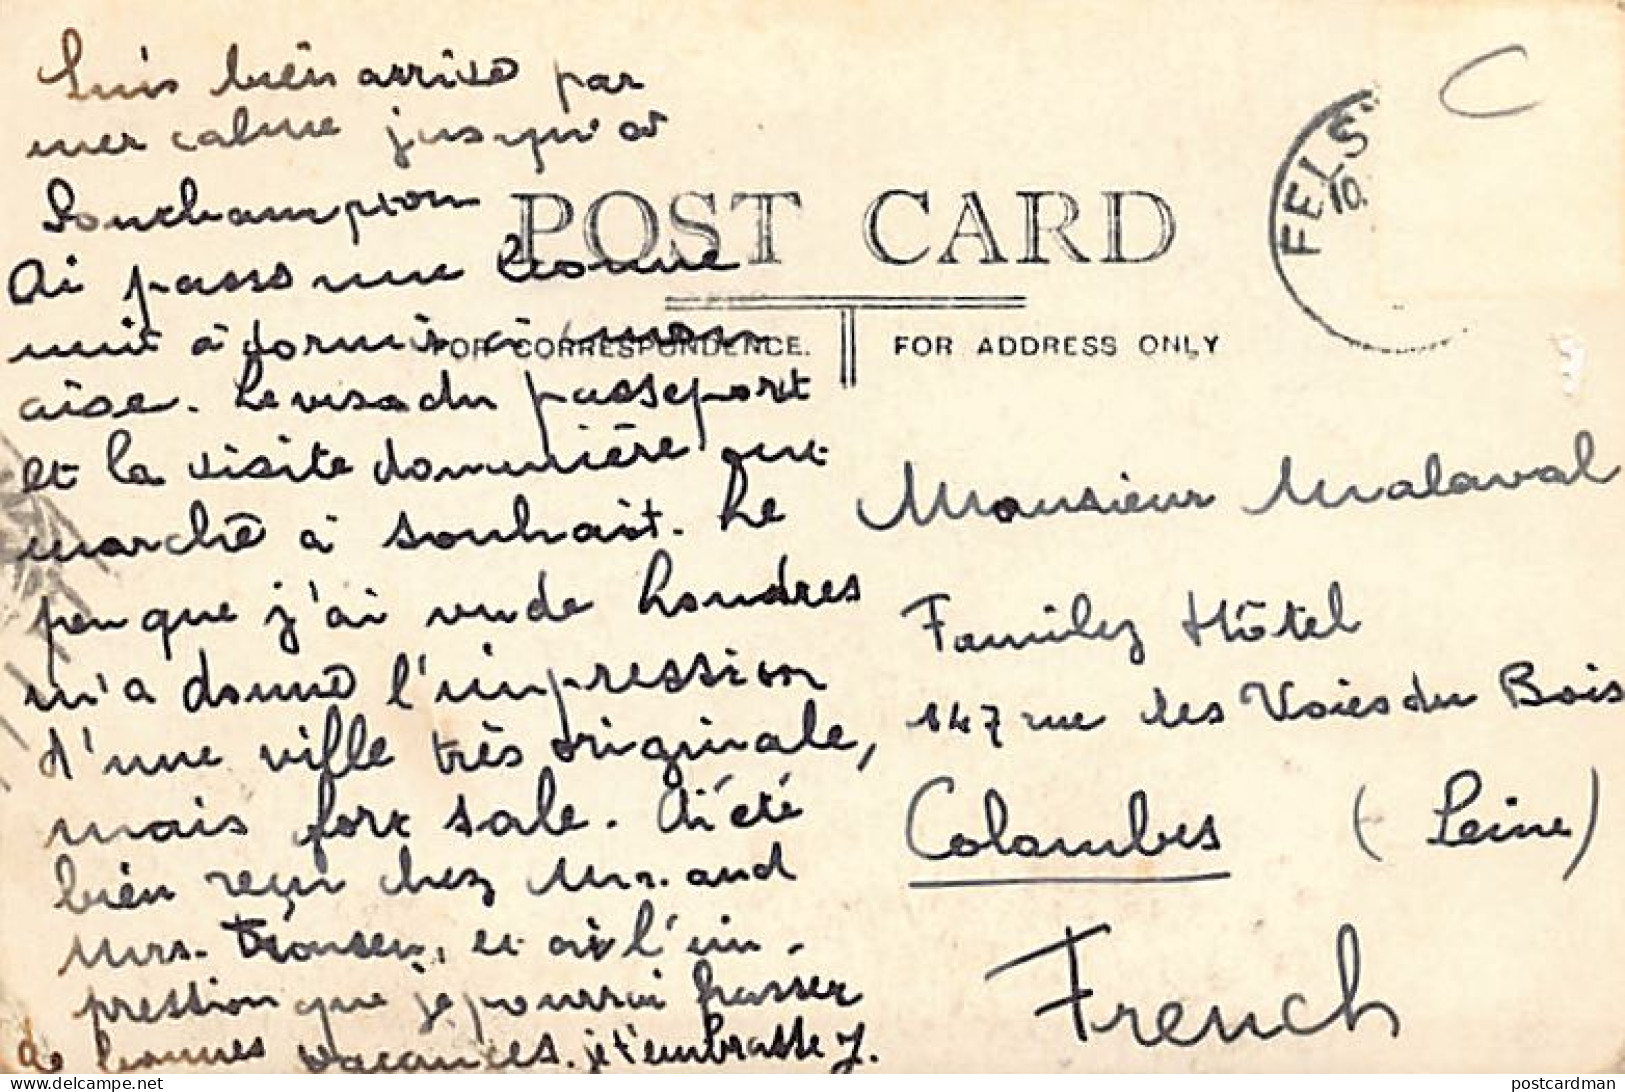 Suis bien arrivé par
mer calme jusqu'à
Southampton
POST CARD
FELS
10.
C
Ai passé une bonne
nuit à dormir à mon
FOR CORRESPONDENCE.
FOR ADDRESS ONLY
aise. Le visa du passeport
et la visite domanière ont
marché à souhait. Le
peu que j'ai vu de Londres
m'a donné l'impression
d'une ville très originale,
mais fort sale. Ai été
bien reçu chez Mr. and
Mrs. et ai l'im-
pression que je pourrai passer
de bonnes vacances. je t'embrasse J.
Monsieur Malaval
Family Hôtel
147 rue des Voies du Bois
Colombes (Seine)
French
postcardman